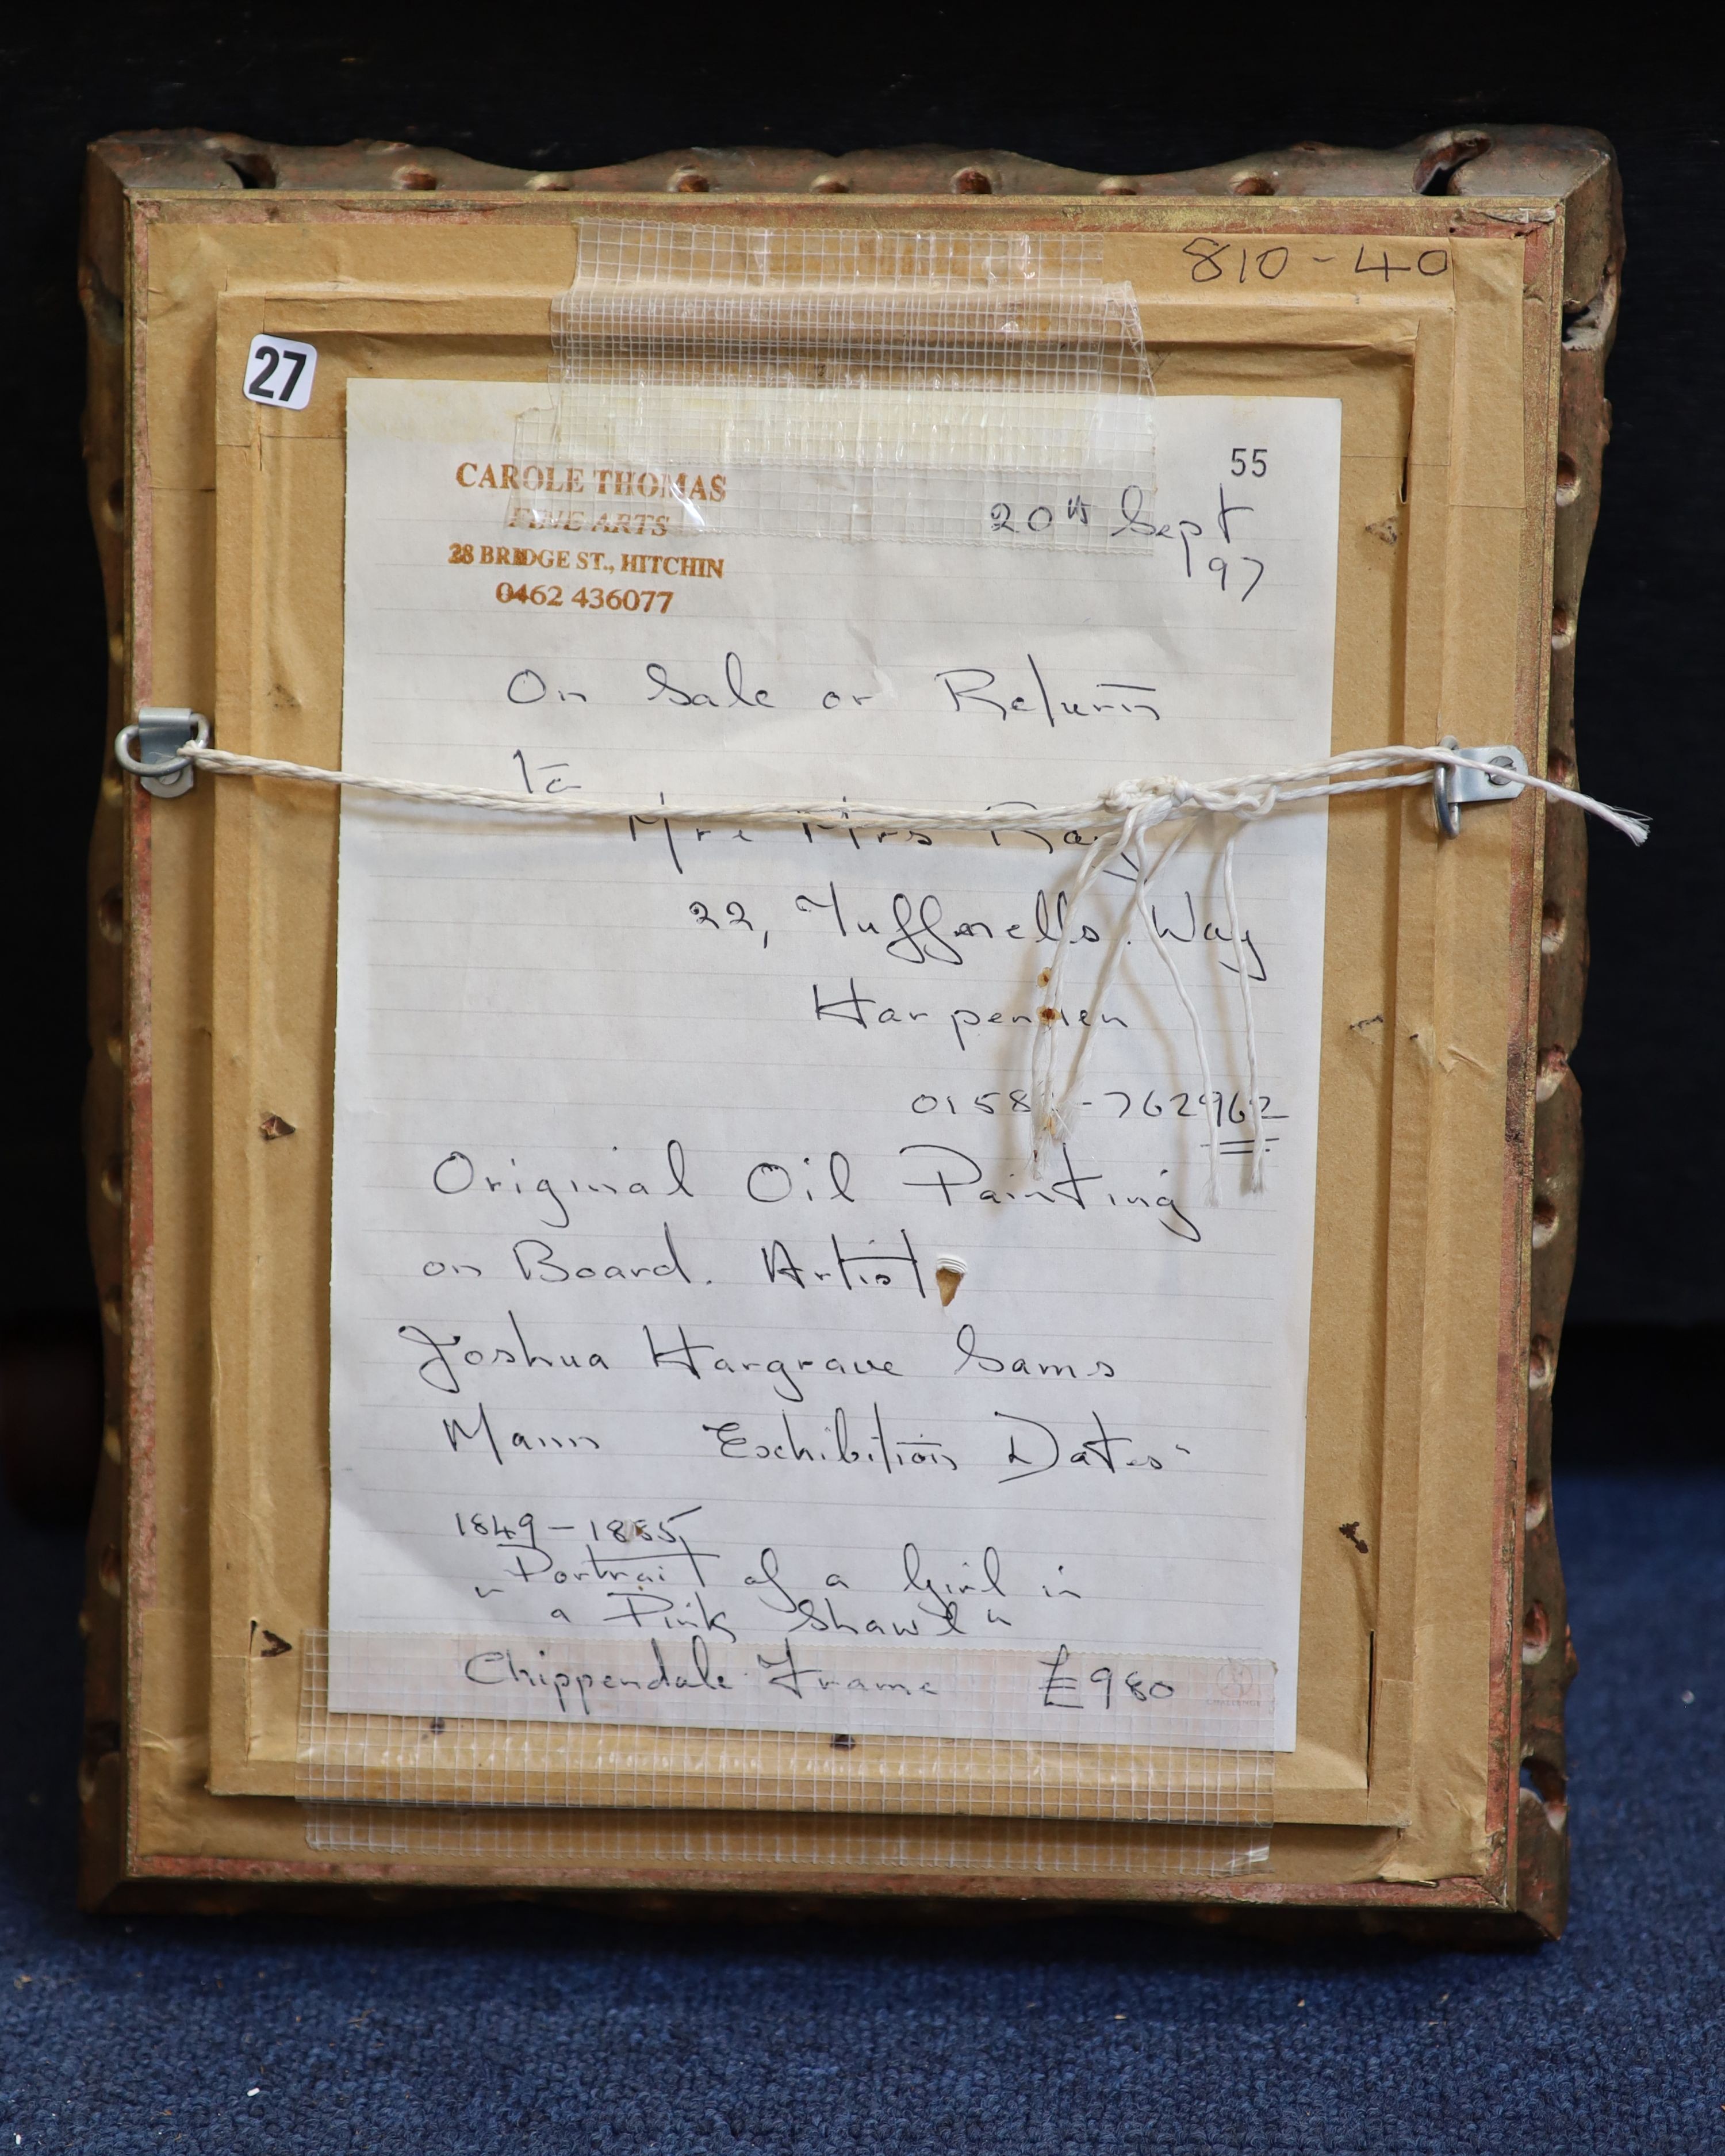 810-40
27
55
CAROLE THOMAS
FINE ARTS
28 BRIDGE ST., HITCHIN
0462 436077
20th Sept
'97
On Sale or Return
To
Mr & Mrs
22, Tuffnells Way
Harpenden
-762962
Original Oil Painting
on Board. Artist
Joshua Hargrave Sams
Mann Exhibition Dates
1849 -
"Portrait of a Girl in
a Pink Shawl"
Chippendale Frame £980